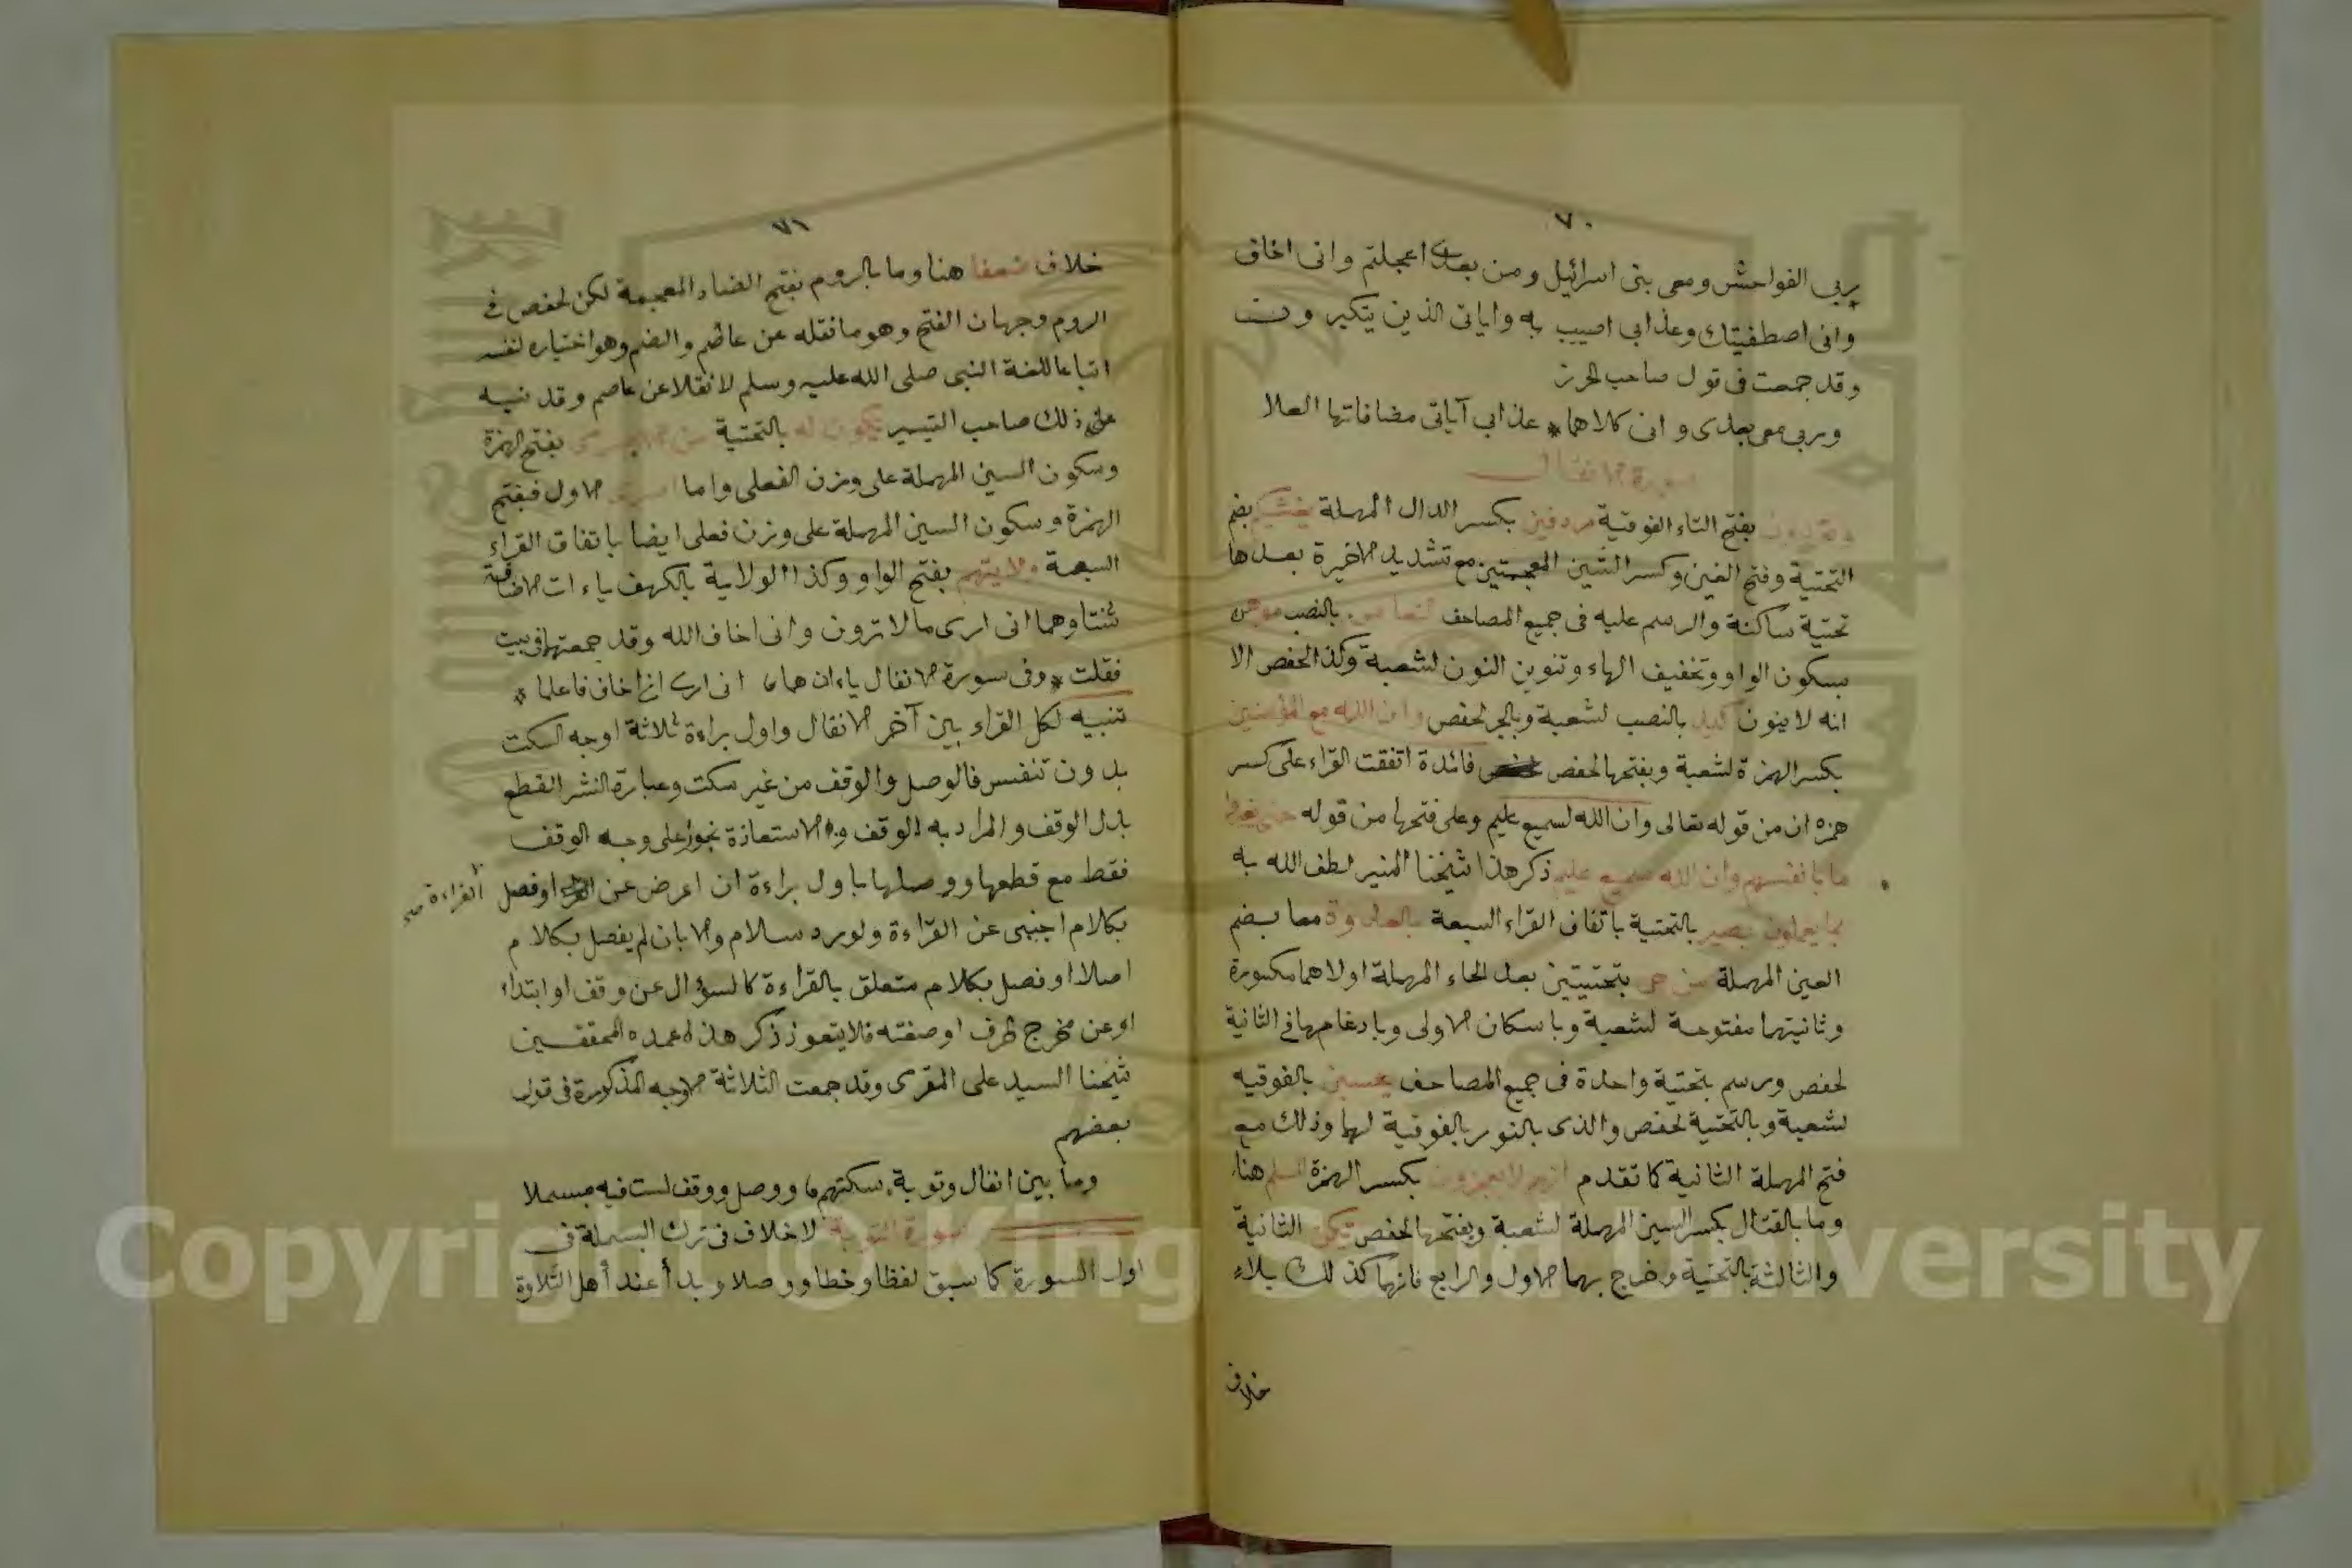 ٧٠
ربي الفواحش ومعى بنى اسرائيل ومن بعدى اعجلتم وانى اخاف
وانى اصطفيتك وعذابى اصيب به واياتى الذين يتكبرون
وقد جمعت فى قول صاحب الحرز
وربى معى بعدى وانى كلاهما * عذابى آياتى مضافاتها العلا
سورة الانفال
بفتح التاء الفوقية مردفين بكسر الدال المهملة يغشيكم بضم
التحتية وفتح الغين وكسر الشين المعجمتين مع تشديد الاخيرة بعدها
تحتية ساكنة والرسم عليه فى جميع المصاحف النعاس بالنصب موهن
بسكون الواو وتخفيف الهاء وتنوين النون لشعبة وكذا لحفص الا
انه لا ينون كيد بالنصب لشعبة وبالجر لحفص وان الله مع المؤمنين
بكسر الهمزة لشعبة وبفتحها لحفص فائدة اتفقت القراء على كسر
همزه ان من قوله تعالى وان الله لسميع عليم وعلى فتحها من قوله حتى يغيروا
ما بانفسهم وان الله سميع عليم ذكر هذا شيخنا المنير لطف الله به
بما يعملون بصير بالتحتية باتفاق القراء السبعة بالعدوة معا بضم
العين المهملة من حى بتحتيتين بعد الحاء المهملة اولاهما مكسورة
وثانيتهما مفتوحة لشعبة وباسكان الاولى وبادغامها فى الثانية
لحفص ورسم بتحتية واحدة فى جميع المصاحف يحسبن بالفوقيه
لشعبة وبالتحتية لحفص والذى بالنور بالفوقية لهما وذلك مع
فتح المهملة الثانية كما تقدم انهم لا يعجزون بكسر الهمزة السلم هنا
وما بالقتال بكسر السين المهملة لشعبة وبفتحها لحفص يكن الثانية
والثالثة بالتحتية وخرج بهما الاول والرابع فانهما كذلك بلا
خلاف
٧١
خلاف ضعفا هنا وما بالروم بفتح الضاد المعجمة لكن لحفص فى
الروم وجهان الفتح وهو ما نقله عن عاصم والضم وهو اختياره لنفسه
اتباعا للغة النبى صلى الله عليه وسلم لا نقلا عن عاصم وقد نبه
على ذلك صاحب التيسير يكون له بالتحتية من الاسرى بفتح الهمزة
وسكون السين المهملة على وزن الفعلى واما اسرى الاول فبفتح
الهمزة وسكون السين المهملة على وزن فعلى ايضا باتفاق القراء
السبعة ولايتهم بفتح الواو وكذا الولاية بالكهف ياءات الاضافة
ثنتا وهما انى ارى مالا ترون وانى اخاف الله وقد جمعتهما فى بيت
فقلت * وفى سورة الانفال ياءان هما انى ارى انى اخاف فاعلما *
تنبيه لكل القراء بين آخر الانفال واول براءة ثلاثة اوجه السكت
بدون تنفس فالوصل والوقف من غير سكت وعبارة النشر القطع
بدل الوقف والمراد به الوقف والاستعاذة تجوز على وجه الوقف
فقط مع قطعها ووصلها باول براءة ان اعرض عن اوفصل القراءة صح
بكلام اجنبى عن القراءة ولو رد سلام والا بان لم يفصل بكلام
اصلا او فصل بكلام متعلق بالقراءة كالسؤال عن وقف او ابتداء
او عن مخرج حرف او صفته فلا يتعوذ ذكر هذا عمدة المحققين
شيخنا السيد على المقرى وقد جمعت الثلاثة الاوجه المذكورة فى قول
بعضهم
وما بين انفال وتوبة سكتهم ووصل ووقف لست فيه مبسملا
سورة التوبة لا خلاف فى ترك البسملة فى
اول السورة كما سبق لفظا وخطا ووصلا وبدأ عند أهل التلاوة